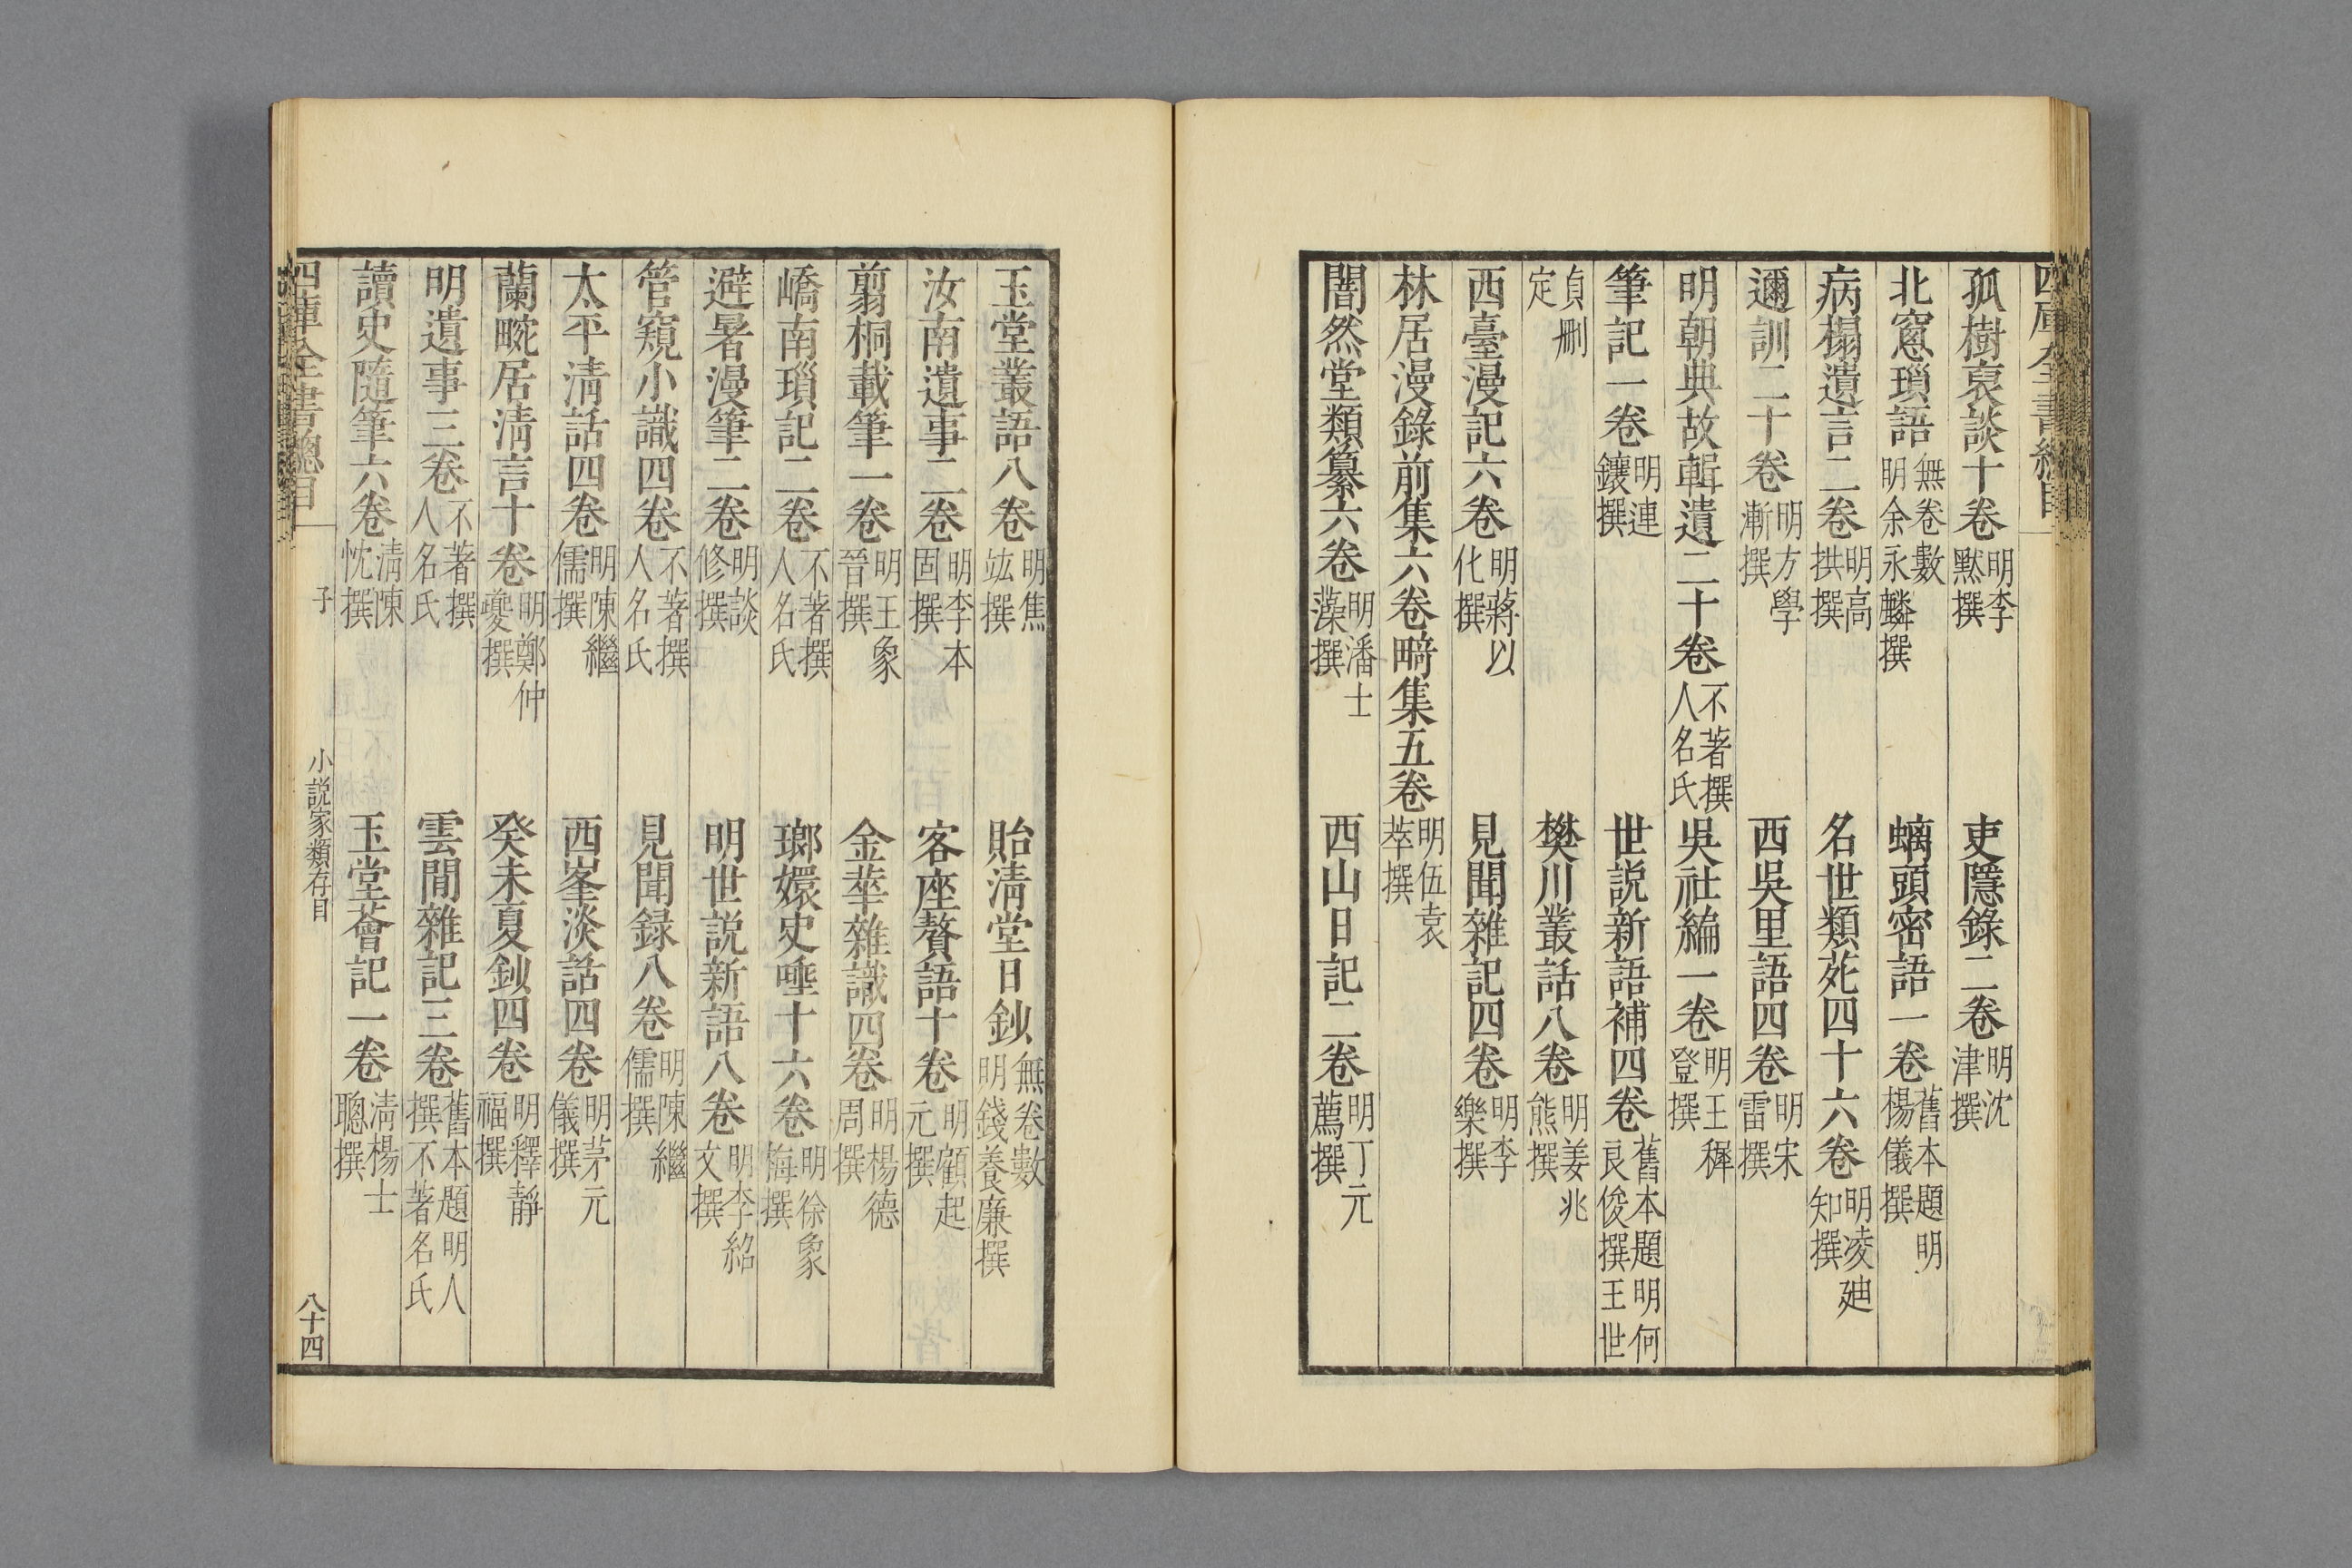 孤樹裒談十卷 明李默撰 吏隱錄二卷 明沈津撰
北窻瑣語 無卷數明余永麟撰 螭頭密語一卷 舊本題明楊儀撰
病榻遺言二卷 明高拱撰 名世類苑四十六卷 明凌迪知撰
邇訓二十卷 明方學漸撰 西吳里語四卷 明宋雷撰
明朝典故輯遺二十卷 不著撰人名氏 吳社編一卷 明王穉登撰
筆記一卷 明連鑲撰 世説新語補四卷 舊本題明何良俊撰王世
貞刪定 樊川叢話八卷 明姜兆熊撰
西臺漫記六卷 明蔣以化撰 見聞雜記四卷 明李樂撰
林居漫錄前集六卷畸集五卷 明伍袁萃撰
闇然堂類纂六卷 明潘士藻撰 西山日記二卷 明丁元薦撰
玉堂叢語八卷 明焦竑撰 貽清堂日鈔 無卷數明錢養廉撰
汝南遺事二卷 明李本固撰 客座贅語十卷 明顧起元撰
翦桐載筆一卷 明王象晉撰 金華雜識四卷 明楊德周撰
嶠南瑣記二卷 不著撰人名氏 瑯嬛史唾十六卷 明徐象梅撰
避暑漫筆二卷 明談修撰 明世説新語八卷 明李紹文撰
管窺小識四卷 不著撰人名氏 見聞録八卷 明陳繼儒撰
太平清話四卷 明陳繼儒撰 西峯淡話四卷 明茅元儀撰
蘭畹居清言十卷 明鄭仲夔撰 癸未夏鈔四卷 明釋靜福撰
明遺事三卷 不著撰人名氏 雲間雜記三卷 舊本題明人撰不著名氏
讀史隨筆六卷 清陳忱撰 玉堂薈記一卷 清楊士聰撰
四庫全書總目 子 小説家類存目 八十四